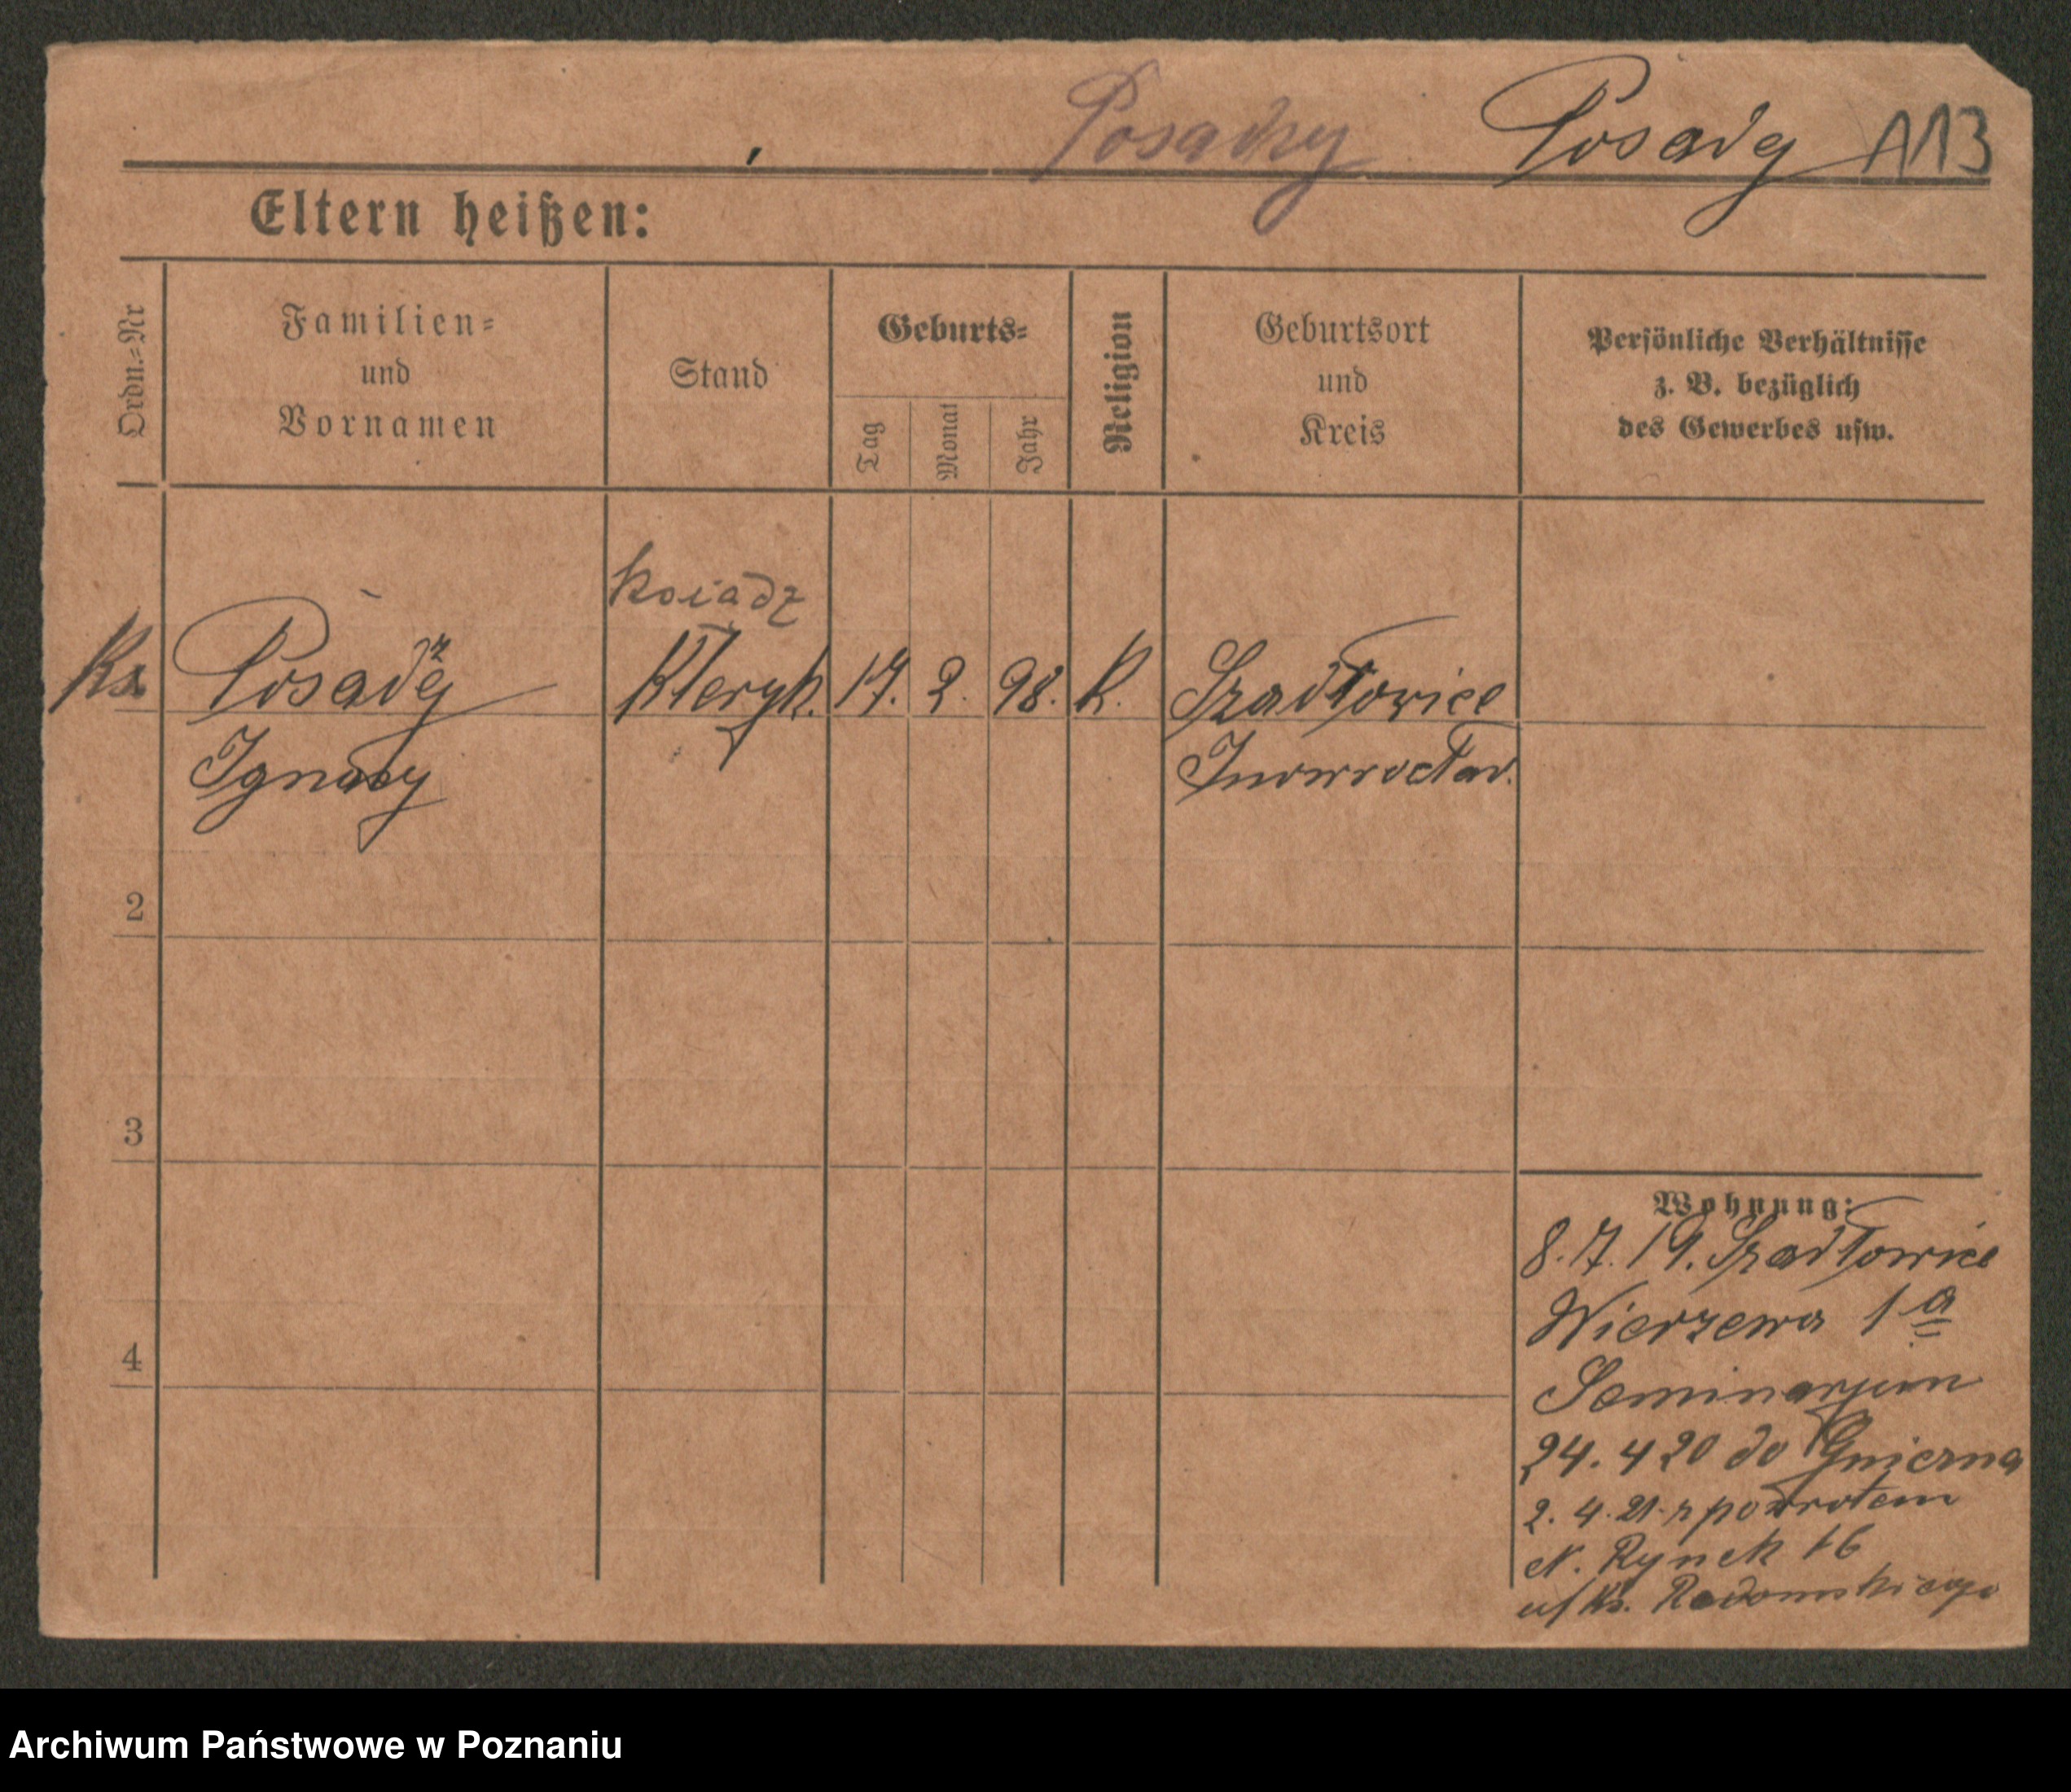 Posadzy Posady 113
Eltern heißen:
Ordn.-Nr
Familien-
und
Vornamen
Stand
Geburts-
Tag
Monat
Jahr
Religion
Geburtsort
und
Kreis
Persönliche Verhältnisse
z. B. bezüglich
des Gewerbes usw.
Ksiądz
Ks. Posadzy Kleryk. 17. 2. 98. K. Szadłowice
Ignacy Inowrocław.
2
3
4
Wohnung:
8.7.19. Szadłowice
Wierzewa 1a
Seminarjum
24. 4 20 do Gniezna
2. 4. 21. z powrotem
N. Rynek 16
u/ Ks. Radomskiego
Archiwum Państwowe w Poznaniu